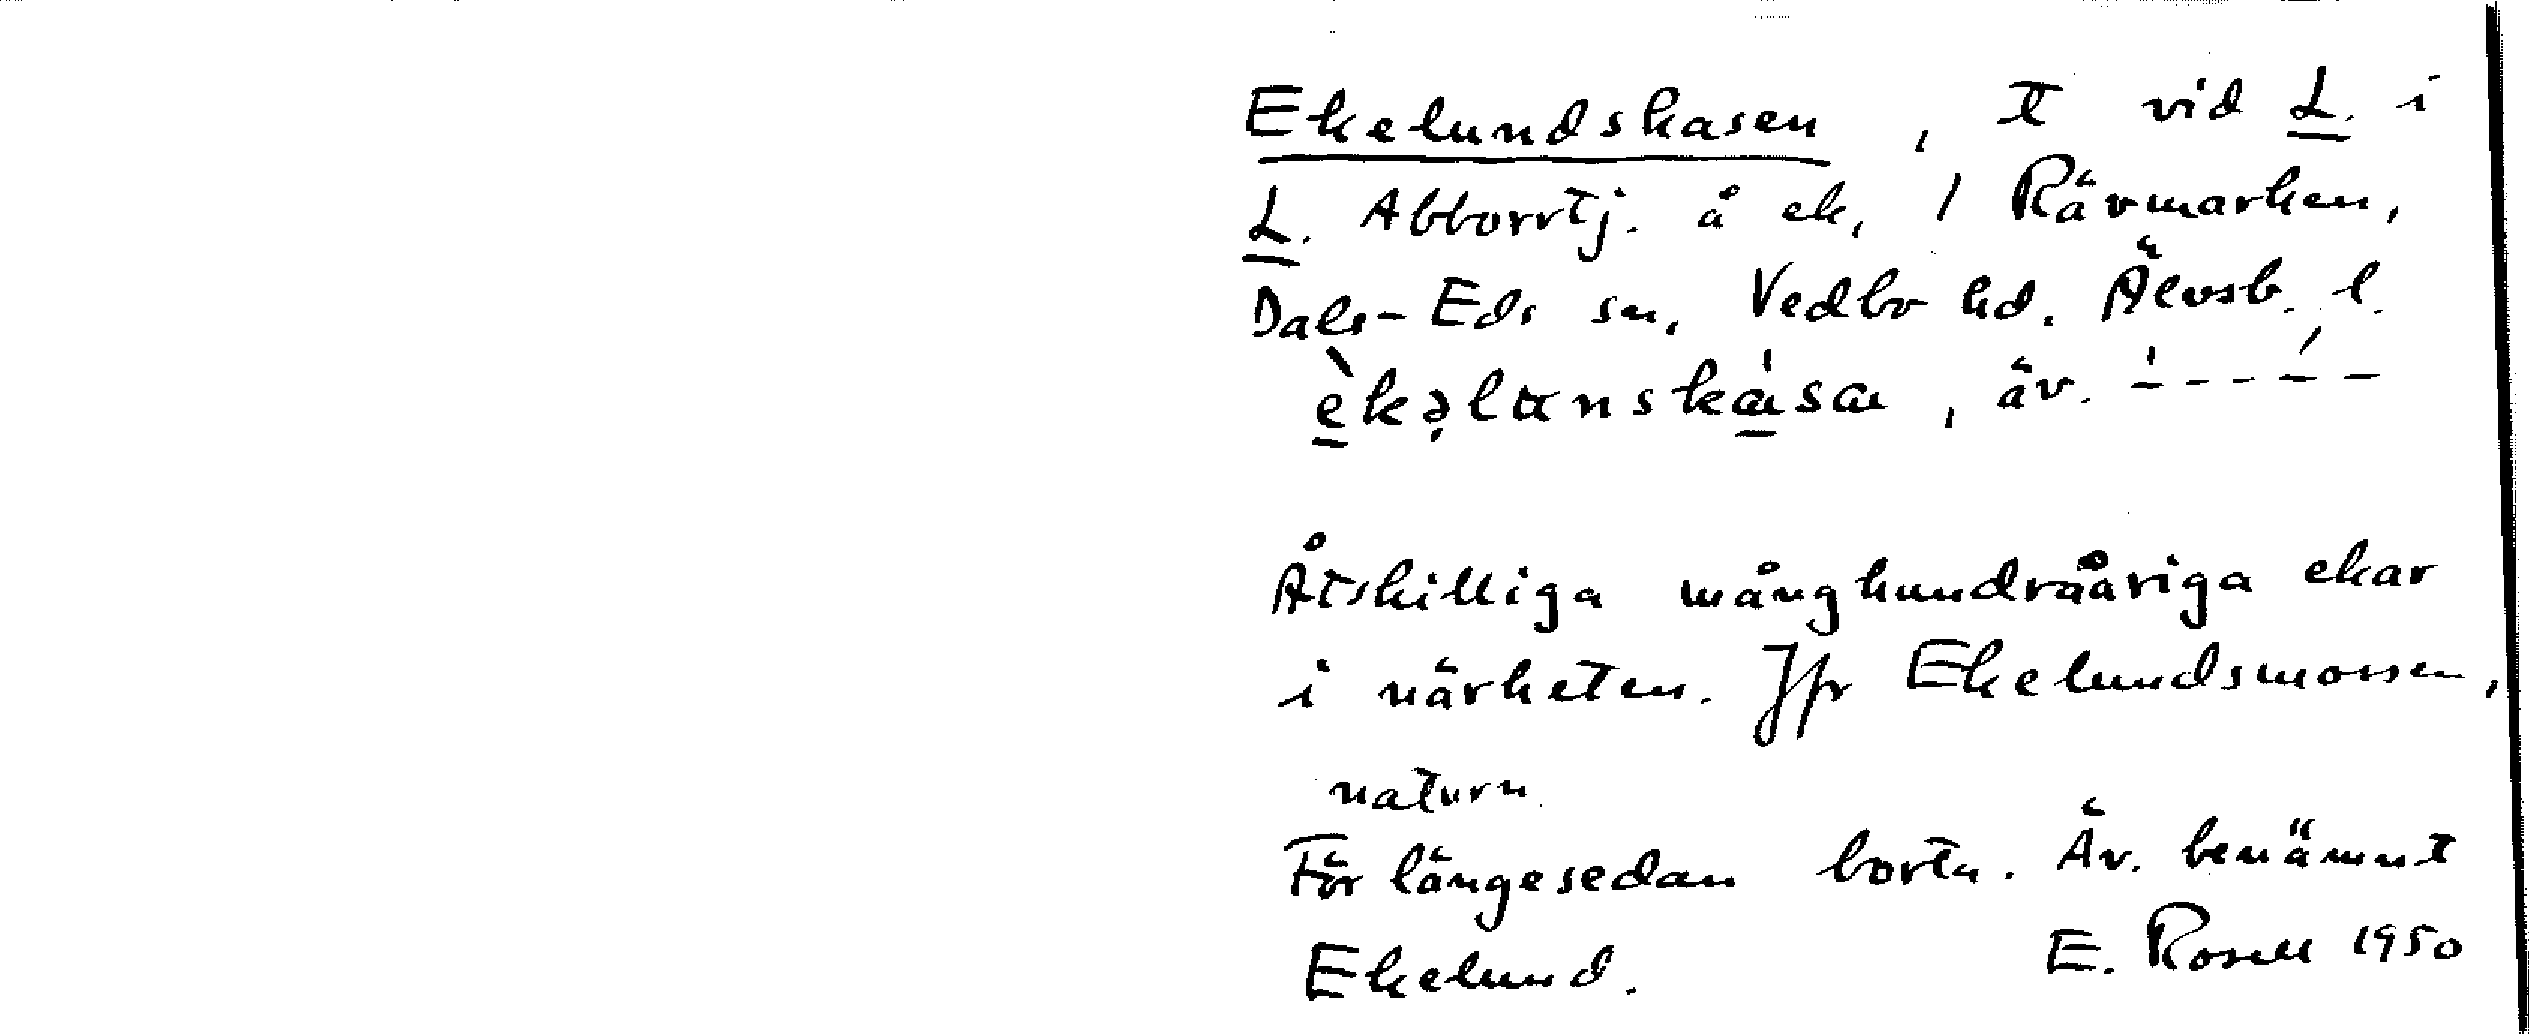 Ekelundskasen, t vid L. i
L. Abborrtj. å ek, 1 Rävmarken,
Dals-Eds sn, Vedbo hd. Älvsb. l.
èkəlunskása, äv. -́----́-
Åtskilliga månghundraåriga ekar
i närheten. Jfr Ekelundsmossen,
naturn
För längesedan borta. Äv. benämnt
Ekelund. E. Rosell 1950